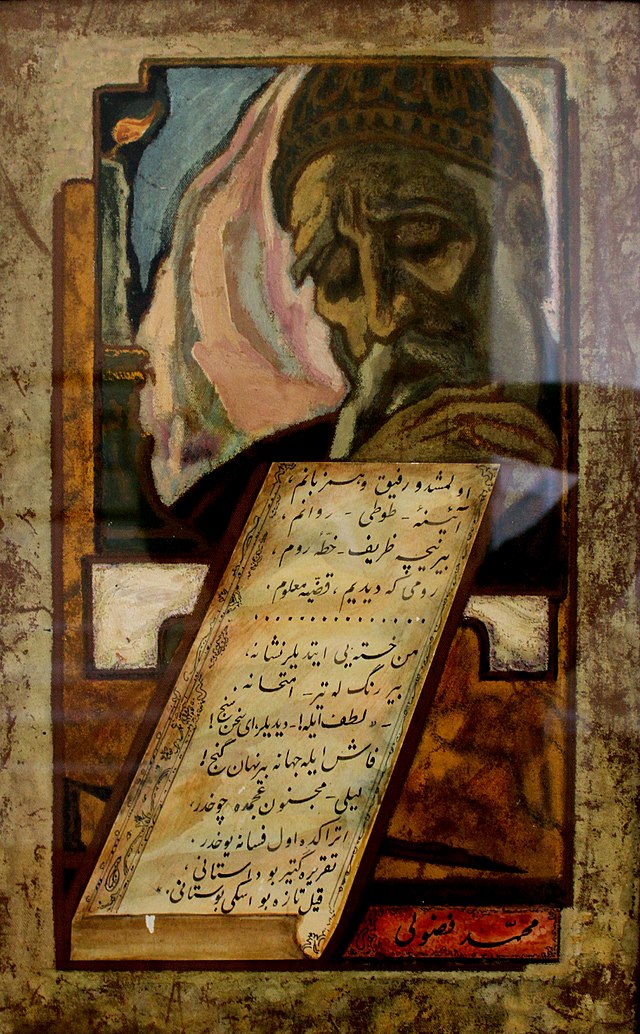 اولمشدو رفیق و همزبانم،
آئینهٔ - طوطی - روانم.
بیرنیچه ظریف - خطّهٔ روم،
رومی که دیدیم، قضیّه معلوم.
..............
من خسته‌یی ایتدیلر نشانه،
بیر رنگ له تیر - امتحانه
- «لطف ایله! - دیدیلر، ای سخن سنج!
فاش ایله جهانه بیر نهان گنج!
لیلی - مجنون عجمده چوخدر،
اتراکده اول فسانه یوخدر.
تقریره گتیر بو داستانی،
قیل تازه بو اسکی بوستانی».
محمّد فضولی